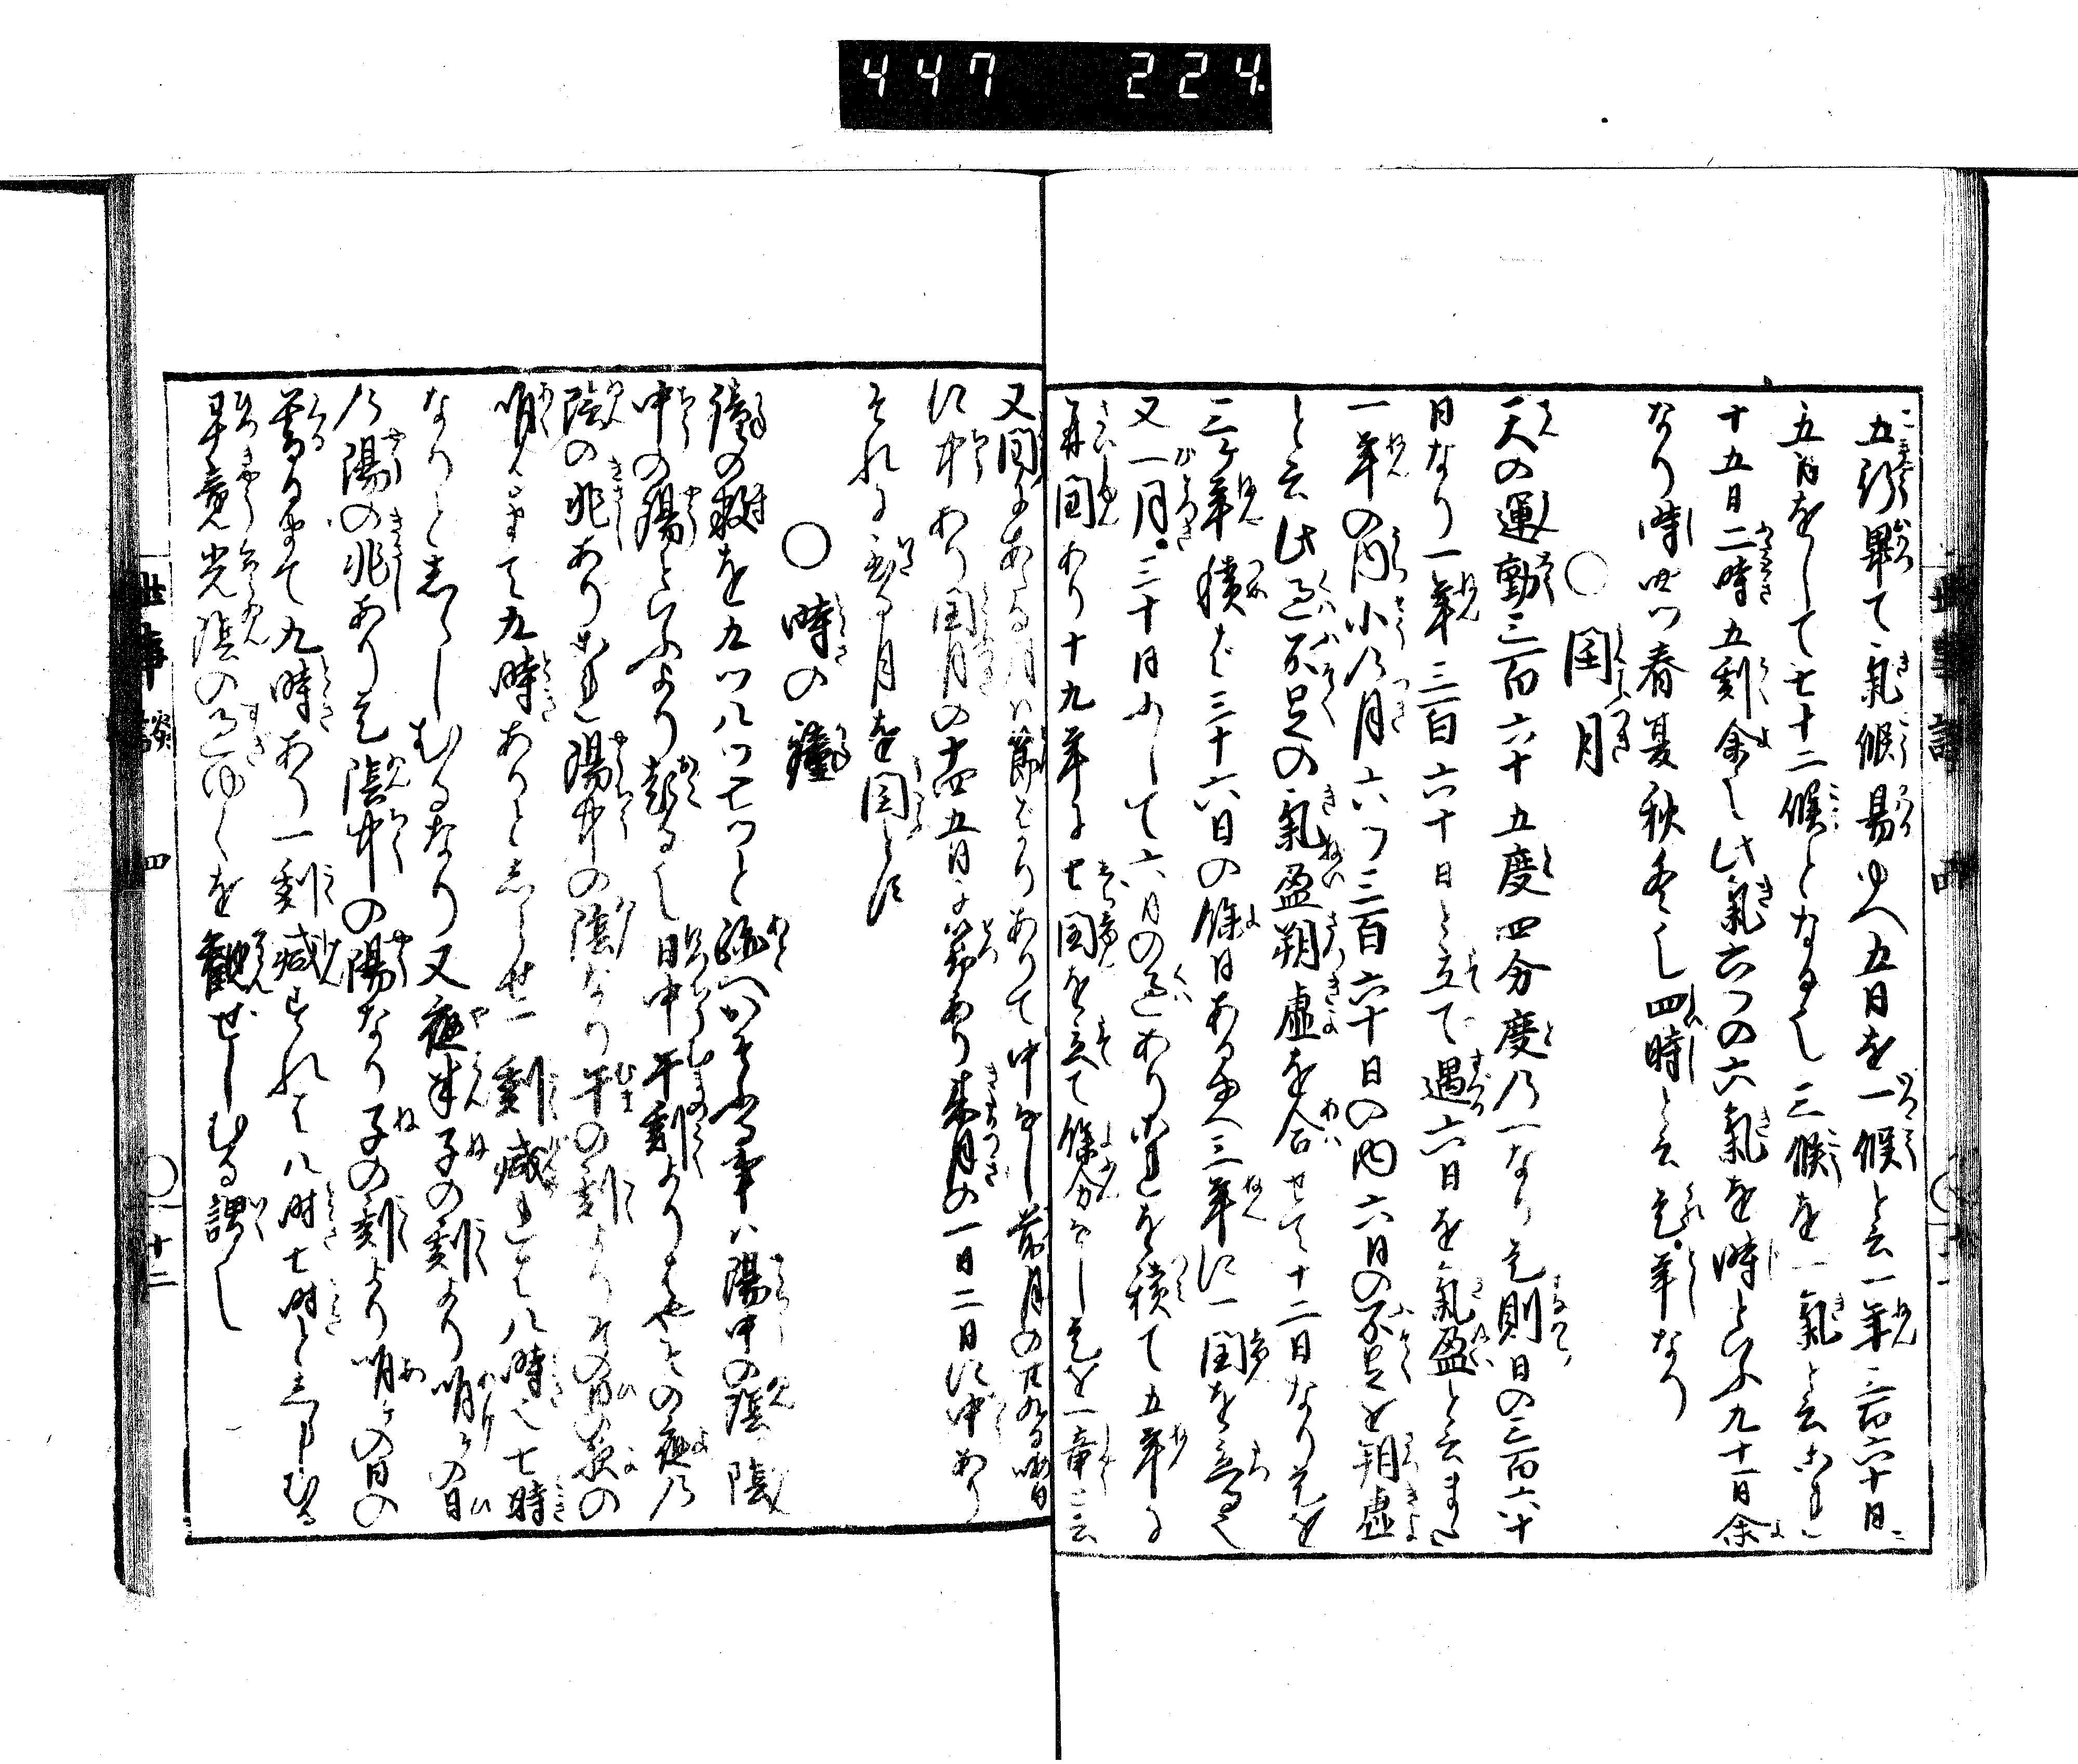 447 224
五行畢て氣候易ゆへ五日を一候と云一年三百六十日
五日をして七十二候となる也三候を一氣と云これ
十五日二時五刻余也此氣六つの六氣を時といふ九十一日余
なり時四つ春夏秋冬也四時と云是年なり
○閏月
天の運動三百六十五度四分度の一なり是則日の三百六十
日なり一年三百六十日と立て過六日を氣盈と云また
一年の内小の月六つ三百六十日の内六日の不足を朔虚
と云此過不足の氣盈朔虚を合せて十二日なり是を
三ヶ年積ば三十六日の餘日あるゆへ三年に一閏を立る也
又一月三十日にして六日の過ありこれを積て五年に
再閏あり十九年に七閏を立て餘分なし是を一章と云
又閏にあたる月は節ばかりありて中なし前月の廿九日晦日
に中あり閏月の十四五日に節あり来月の一日二日に中あり
それに当る月を閏とす
○時の鐘
鐘の数を九つ八つ七つと逓へかぞふる事は陽中の陰陰
中の陽といふより起る也日中午刻よりはやその夜の
陰の兆ありこれ陽中の陰なり午の刻よりその日夜の
明るまて九時ありとしらせ一刻減すれは八時也七時
なりと志らしむるなり又夜半子の刻より明るの日
の陽の兆あり是陰中の陽なり子の刻より明るの日の
暮るまて九時あり一刻減ずれは八時七時としらしむる
早竟光陰の過ゆくを觀ぜしむる謂也
世事談 四 ○十二